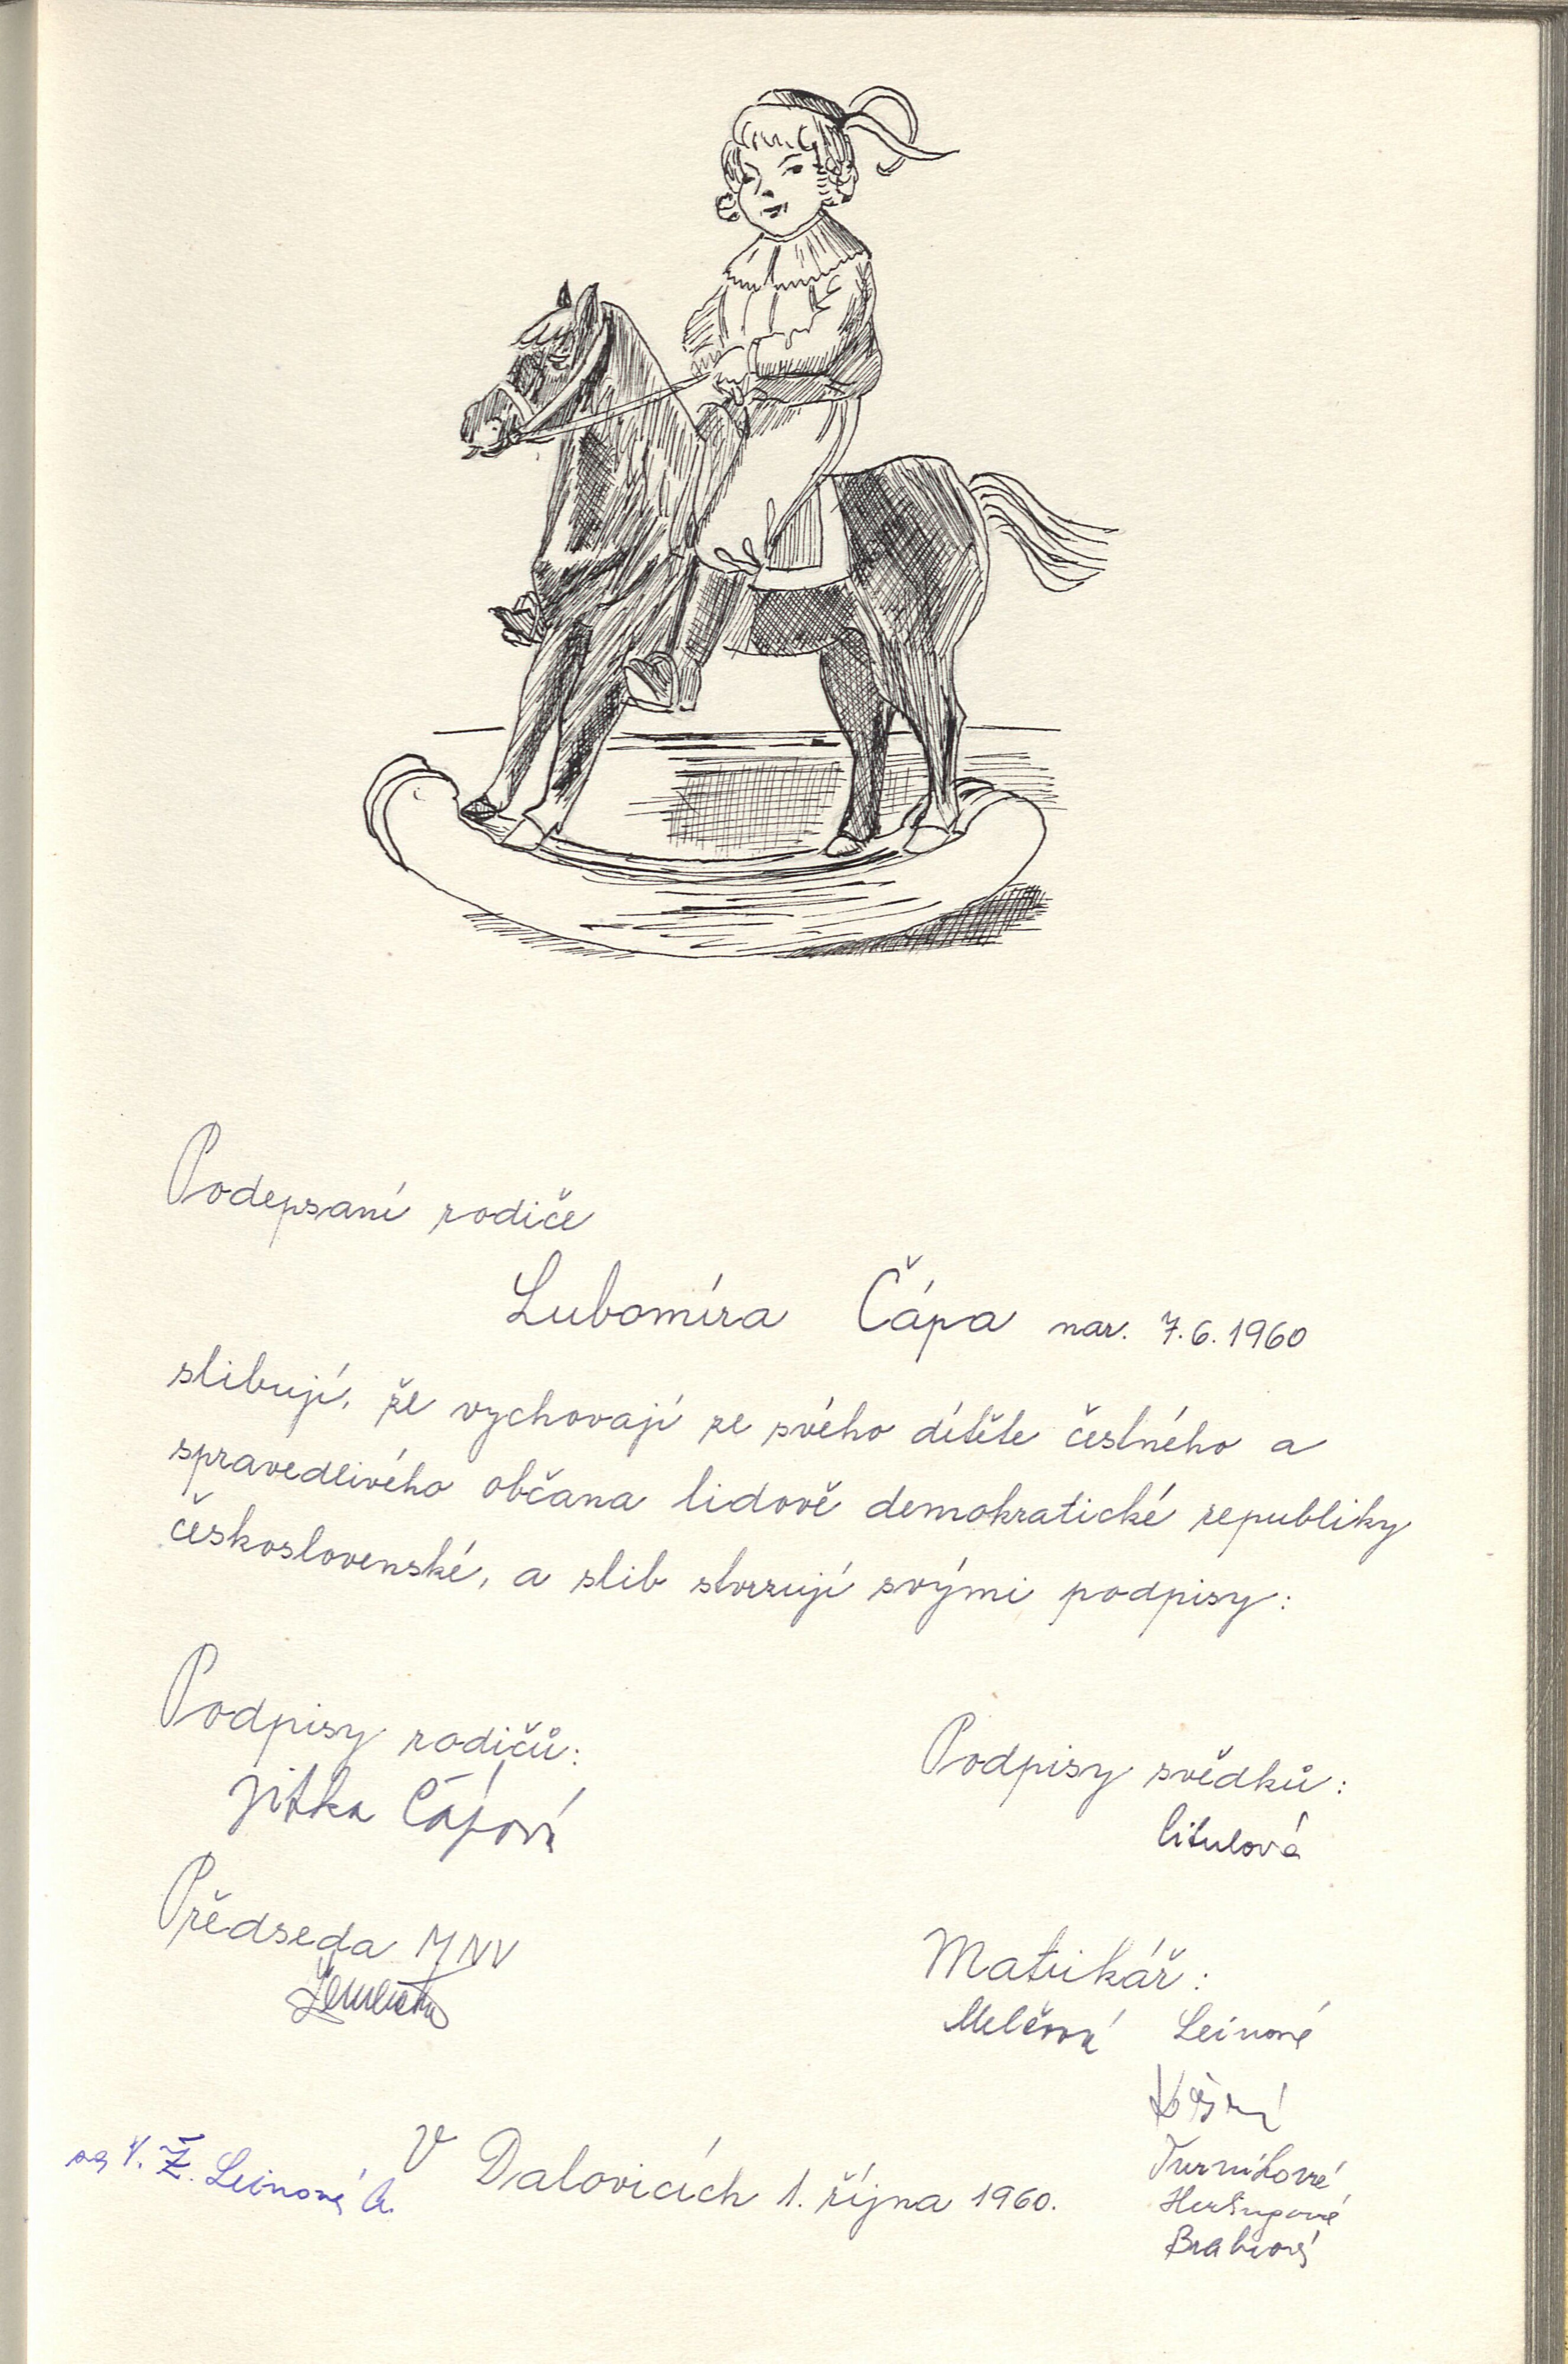 Podepsaní rodiče
Lubomíra Čápa nar. 7.6.1960
slibují, že vychovají ze svého dítěte čestného a
spravedlivého občana lidově demokratické republiky
československé, a slib stvrzují svými podpisy:
Podpisy rodičů:
Jitka Čápová
Podpisy svědků:
Citulová
Předseda MNV
Matrikář:
Melčová Leinové
V Dalovicích 1. října 1960.
Ž. Leinová